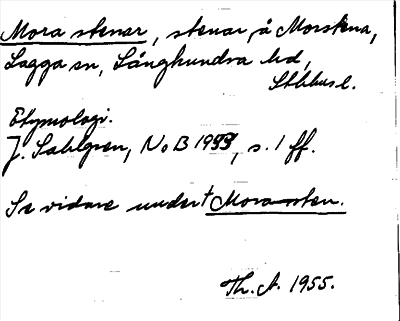 Mora stenar, stenar å Morstena,
Lagga sn, Långhundra hd,
Sthlms l.
Etymologi.
J. Sahlgren, NoB 1953, s. 1 ff.
Se vidare under † Morasten.
Th. A. 1955.